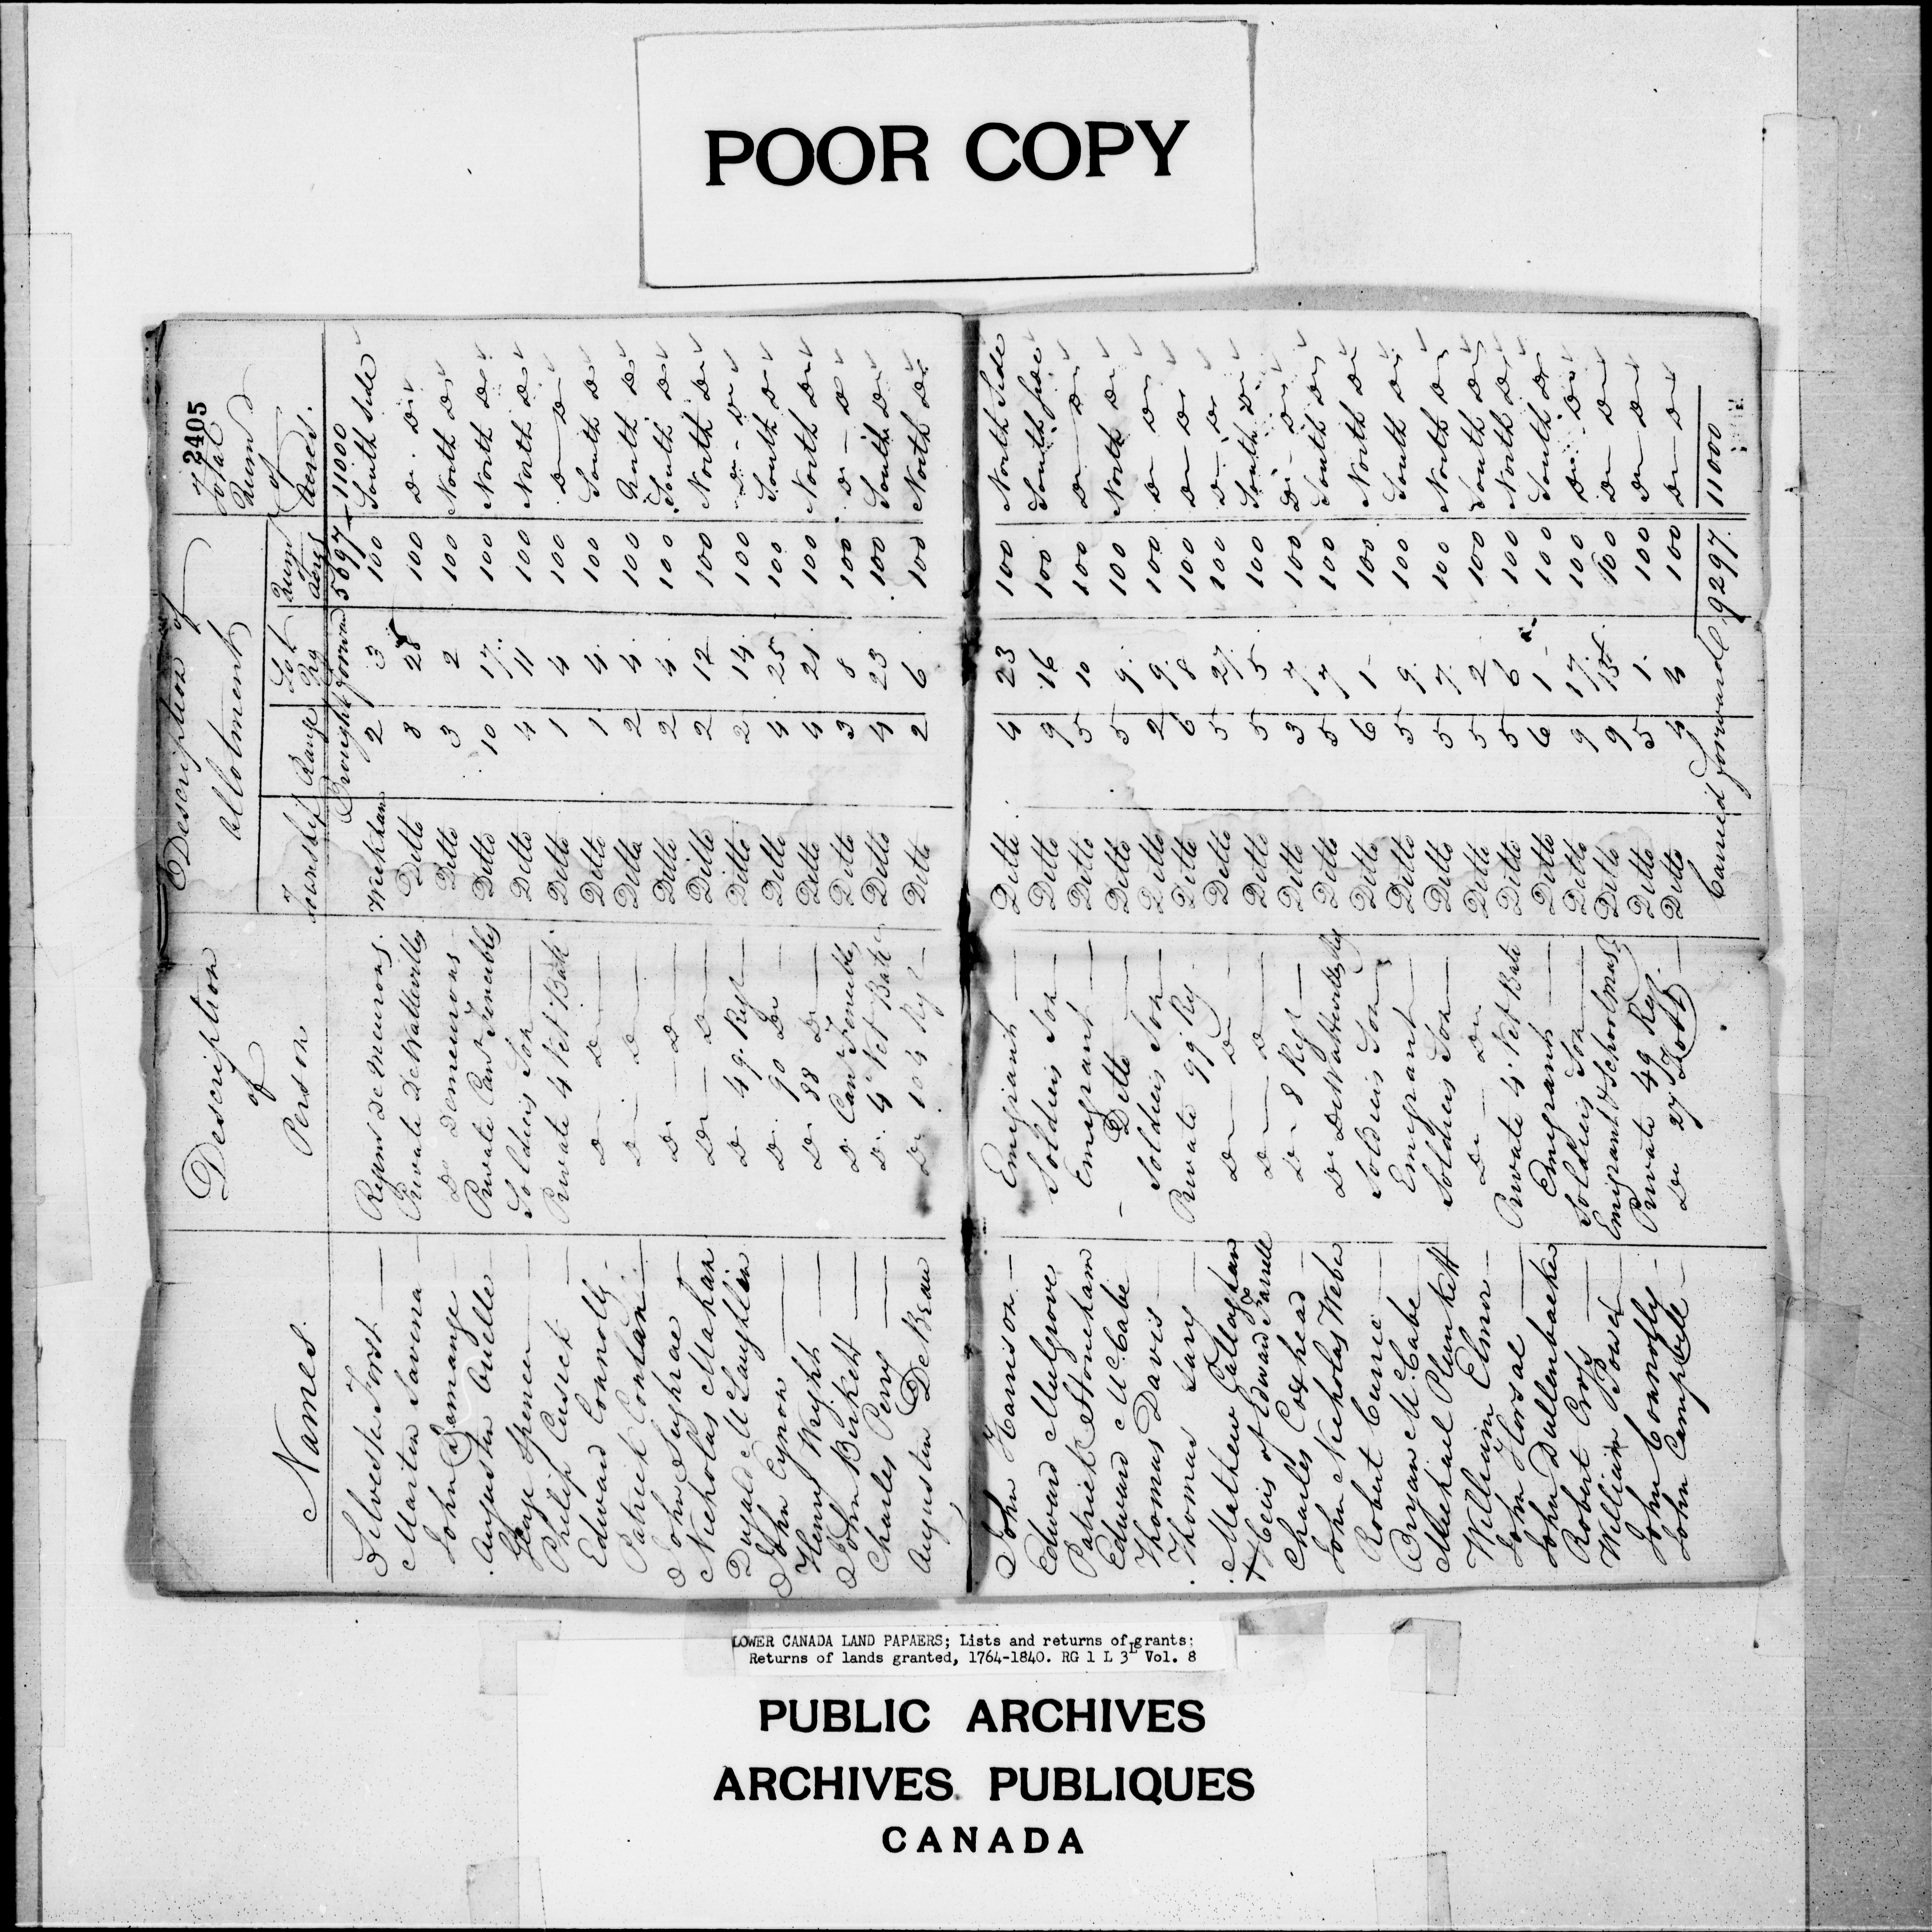 POOR COPY
2405
Names. Description of Person Description of Allotment Total Quand of Acres.
Township Range Lot No Quand of Acres
Brought forward 5697 11000
Silvester Forst — Regmt De Meurons. Wickham 2 3 100 South Side
Martin Savena — Private DeWattevilles Ditto 8 28 100 Do. Do
John Demange — Do Demeurons — Ditto 3 2 100 North Do
Augustin Ouelle — Private Cand Fencibles Ditto 10 17. 100 North Do
George Spencer — Soldiers Son — Ditto 4 11 100 North Do
Philip Cusick — Private 4 Vet Batt. Ditto 1 4 100 Do — Do
Edward Connolly — Do — Do — Ditto 1 4. 100 South Do
Patrick Conlan — Do. Do — Ditto 2 4 100 North Do
John Sughrae — Do — Do — Ditto 2 4 100 South Do
Nicholas Mahan Do — Do — Ditto 2 12 100 North Do
Dugald McLaughlin Do 49 Regt — Ditto 2 14. 100 Do - Do
John Cynon — Do. 90 Do — Ditto 4 25 100 South Do
Henry Wright — Do 88 Do — Ditto 4 21. 100 North Do
John Birkett — Do Can Fencibles Ditto 3 8 100 Do — Do
Charles Perry — Do. 4 Vet Batt — Ditto 4 23 100 South Do
Augustin DeBeau Do. 104 Rgt — Ditto 2 6 100 North Do
John Harrison — Emigrant — Ditto 4 23 100 North Side
Edward Mulgrove Soldiers Son — Ditto 9 16 100 South Side
Patrick Stoneham Emigrant — Ditto 5 10 100 Do — Do
Edward McCabe — Ditto — Ditto 5 9. 100 North Do
Thomas Davis — Soldiers Son — Ditto 2 9. 100 Do Do
Thomas Lary — Private 99 Reg Ditto 6 8 100 Do — Do
Mathew Callaghan Do — Do Ditto 5 27. 100 Do — Do
+ Heirs of Edward Farrell Do — Do — Ditto 5 5 100 South Do
Charles Coxhead — Do — 8 Regt — Ditto 3 7 100 Do — Do
John Nicholas Webe Do DeWattevilles Reg Ditto 5 7 100 South Do
Robert Currie — Soldiers Son — Ditto 6 1 100 North Do
Bryan McCabe — Emigrant — Ditto 5 9. 100 South Do
Michael Plunkett Soldiers Son — Ditto 5 7. 100 North Do
William Elmer — Do — Do Ditto 5 2 100 South Do
John Horsal — Private 4 Vet Batt Ditto 5 6 100 North Do
John Dullenbacker Emigrant — Ditto 6 1 100 South Do
Robert Cross — Soldiers Son — Ditto 9 17. 100 Do. Do
William Power — Emigrant & Schoolmasr Ditto 9 15 100 Do — Do
John Connolly — Private 49 Reg. — Ditto 5 1. 100 Do — Do
John Campbell — Do 27 Foot — Ditto 4 4 100 Do — Do
Carried forward 9297. 11000
LOWER CANADA LAND PAPAERS; Lists and returns of grants:
Returns of lands granted, 1764-1840. RG 1 L 3L Vol. 8
PUBLIC ARCHIVES
ARCHIVES PUBLIQUES
CANADA